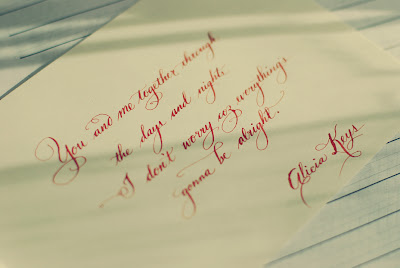 You and me together through
the days and nights
I don't worry coz
gonna be alright.
Alicia Keys